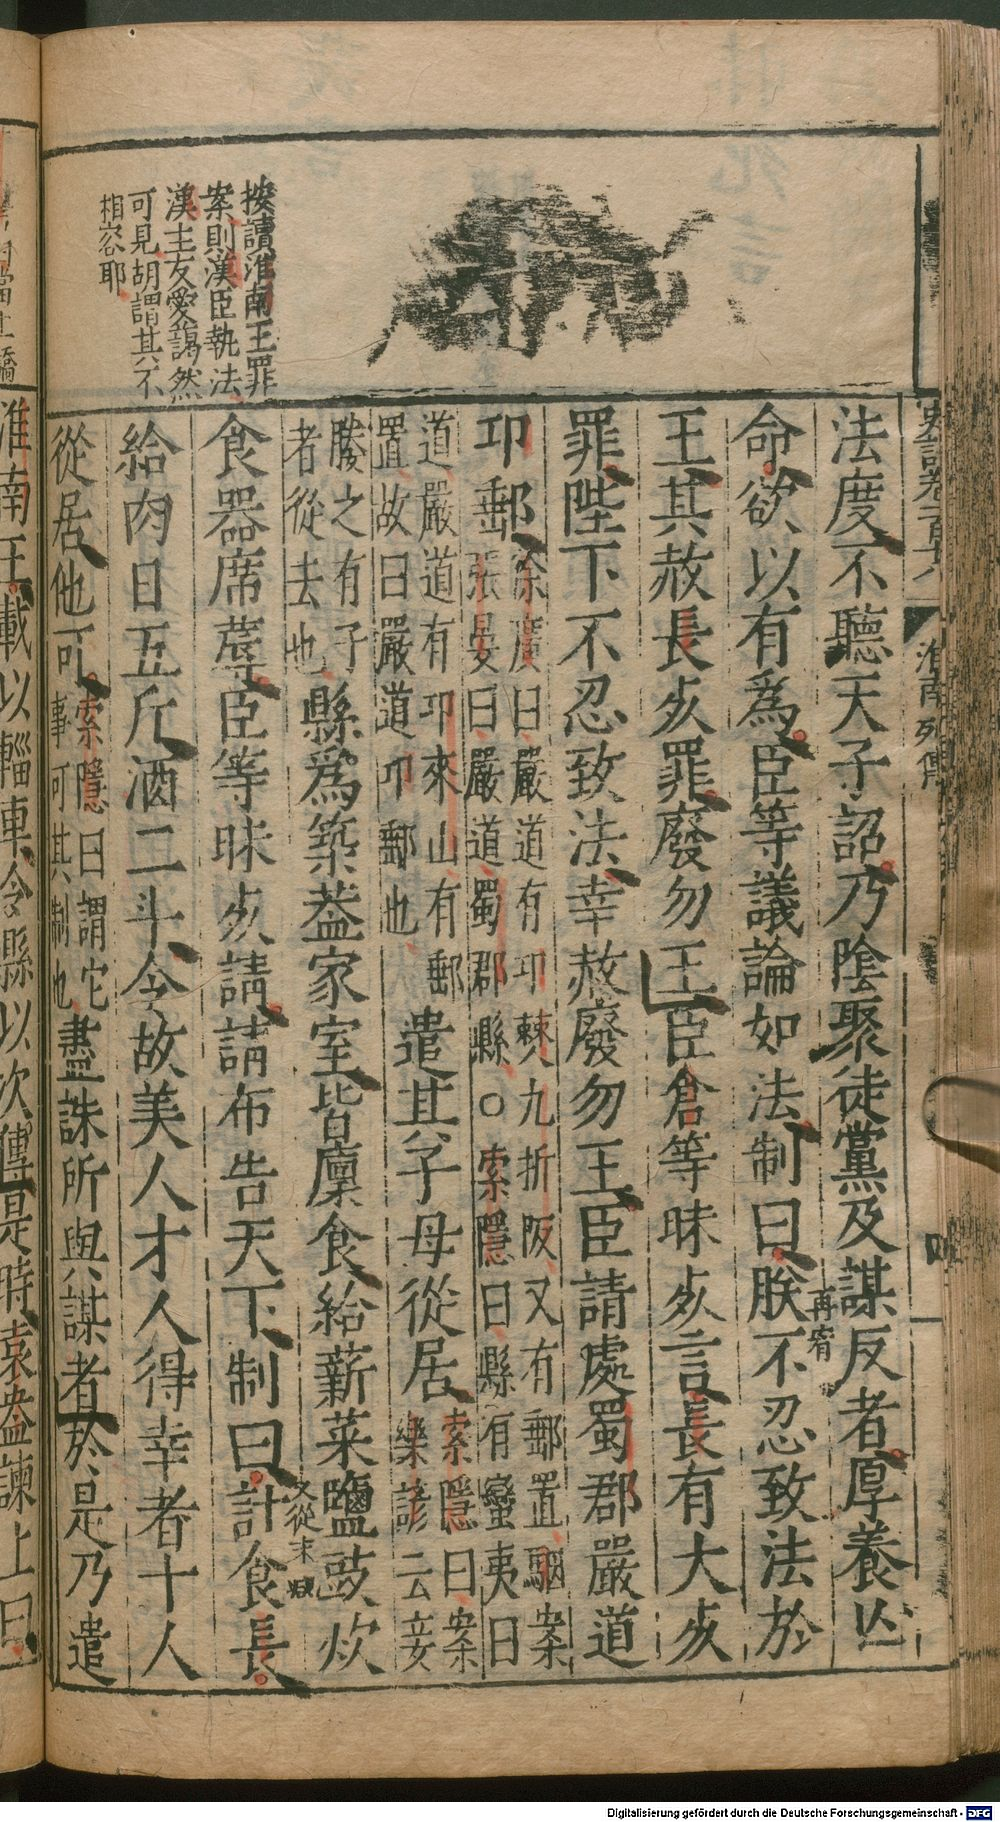 史記卷一百十八
淮南列傳
四
法度不聽天子詔乃陰聚徒黨及謀反者厚養亡
命欲以有爲臣等議論如法制曰朕不忍致法於
再宥
王其赦長死罪廢勿王臣倉等昧死言長有大死
罪陛下不忍致法幸赦廢勿王臣請處蜀郡嚴道
卭郵
徐廣曰嚴道有卭僰九折阪又有郵置駰案
張晏曰嚴道蜀郡縣○索隱曰縣有蠻夷曰
道嚴道有卭來山有郵
置故曰嚴道卭郵也
遣其子母從居
索隱曰案
樂彥云妾
勝之有子
者從去也
縣爲築葢家室皆廩食給薪菜鹽豉炊
食器席蓐臣等昧死請請布告天下制曰計食長
給肉日五斤酒二斗令故美人才人得幸者十人
從居他可
索隱曰謂它
事可其制也
盡誅所與謀者於是乃遣
按讀淮南王罪
案則漢臣執法
漢主友愛藹然
可見胡謂其不
相容耶
淮南王載以輜車令縣以次傳是時袁盎諫上曰
Digitalisierung gefördert durch die Deutsche Forschungsgemeinschaft - DFG